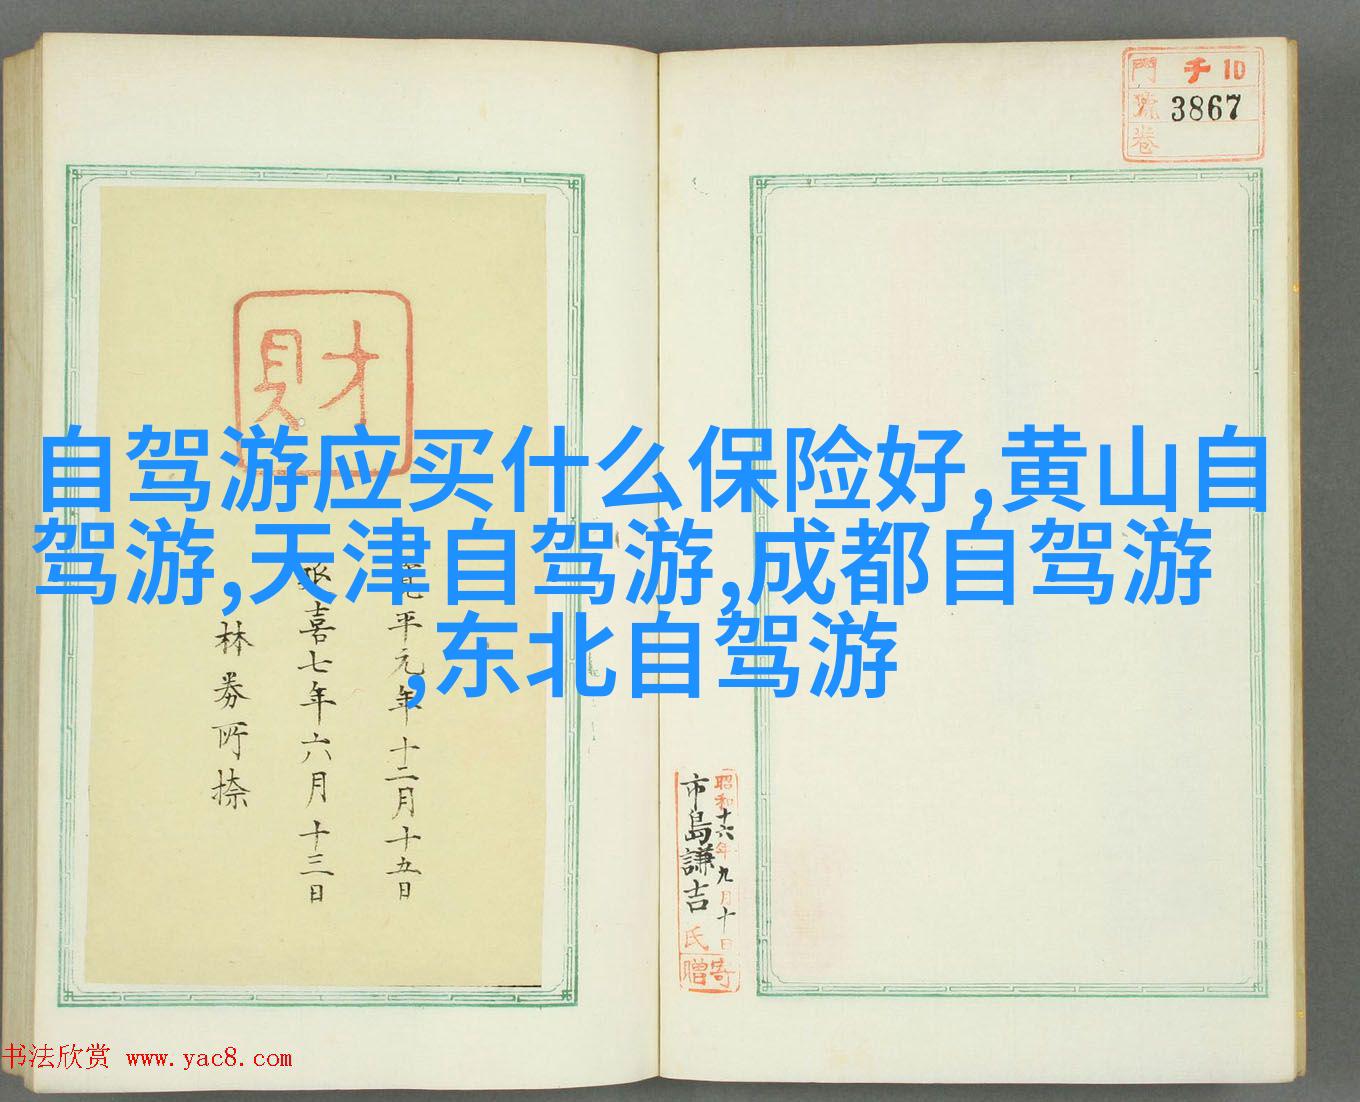 自驾游应买什么保险好,黄山自
驾游,天津自驾游,成都自驾游
,东北自驾游
門 千 10
號 3867
卷
財
平元年十二月十五日
喜七年六月十三日
林
所捺
昭和十六年九月十日
市島謙吉氏
寄贈
书法欣赏 www.yac8.com